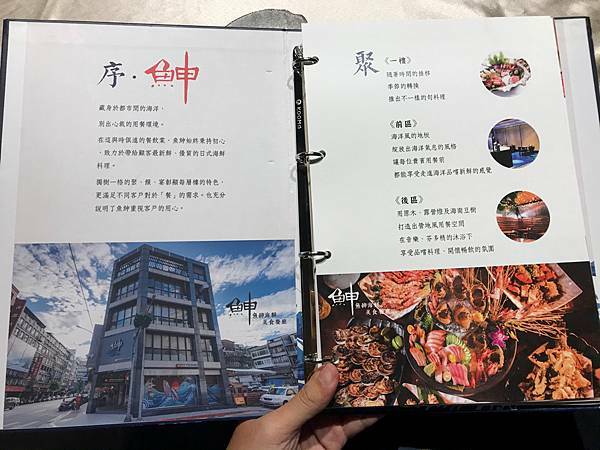 序·魽
藏身於都市間的海洋,
別出心裁的用餐環境。
在這與時俱進的餐飲業,魚紳始終秉持初心
、致力於帶給顧客最新鮮、優質的日式海鮮
料理。
獨樹一格的聚、饌、宴彰顯每層樓的特色,
更滿足不同客戶對於「餐」的需求。也充分
說明了魚紳重視客戶的用心。
魚紳海鮮
美食餐廳
KOOMIS
聚
《一樓》
隨著時間的推移
季節的轉換
推出不一樣的旬料理
《前區》
海洋風的地板
綻放出海洋氣息的風格
讓每位貴賓用餐前
都能享受走進海洋品嚐新鮮的感覺
《後區》
用原木、露營燈及海南豆樹
打造出營地風用餐空間
在音樂、芬多精的沐浴下
享受品嚐料理、開懷暢飲的氛圍
魚紳海鮮